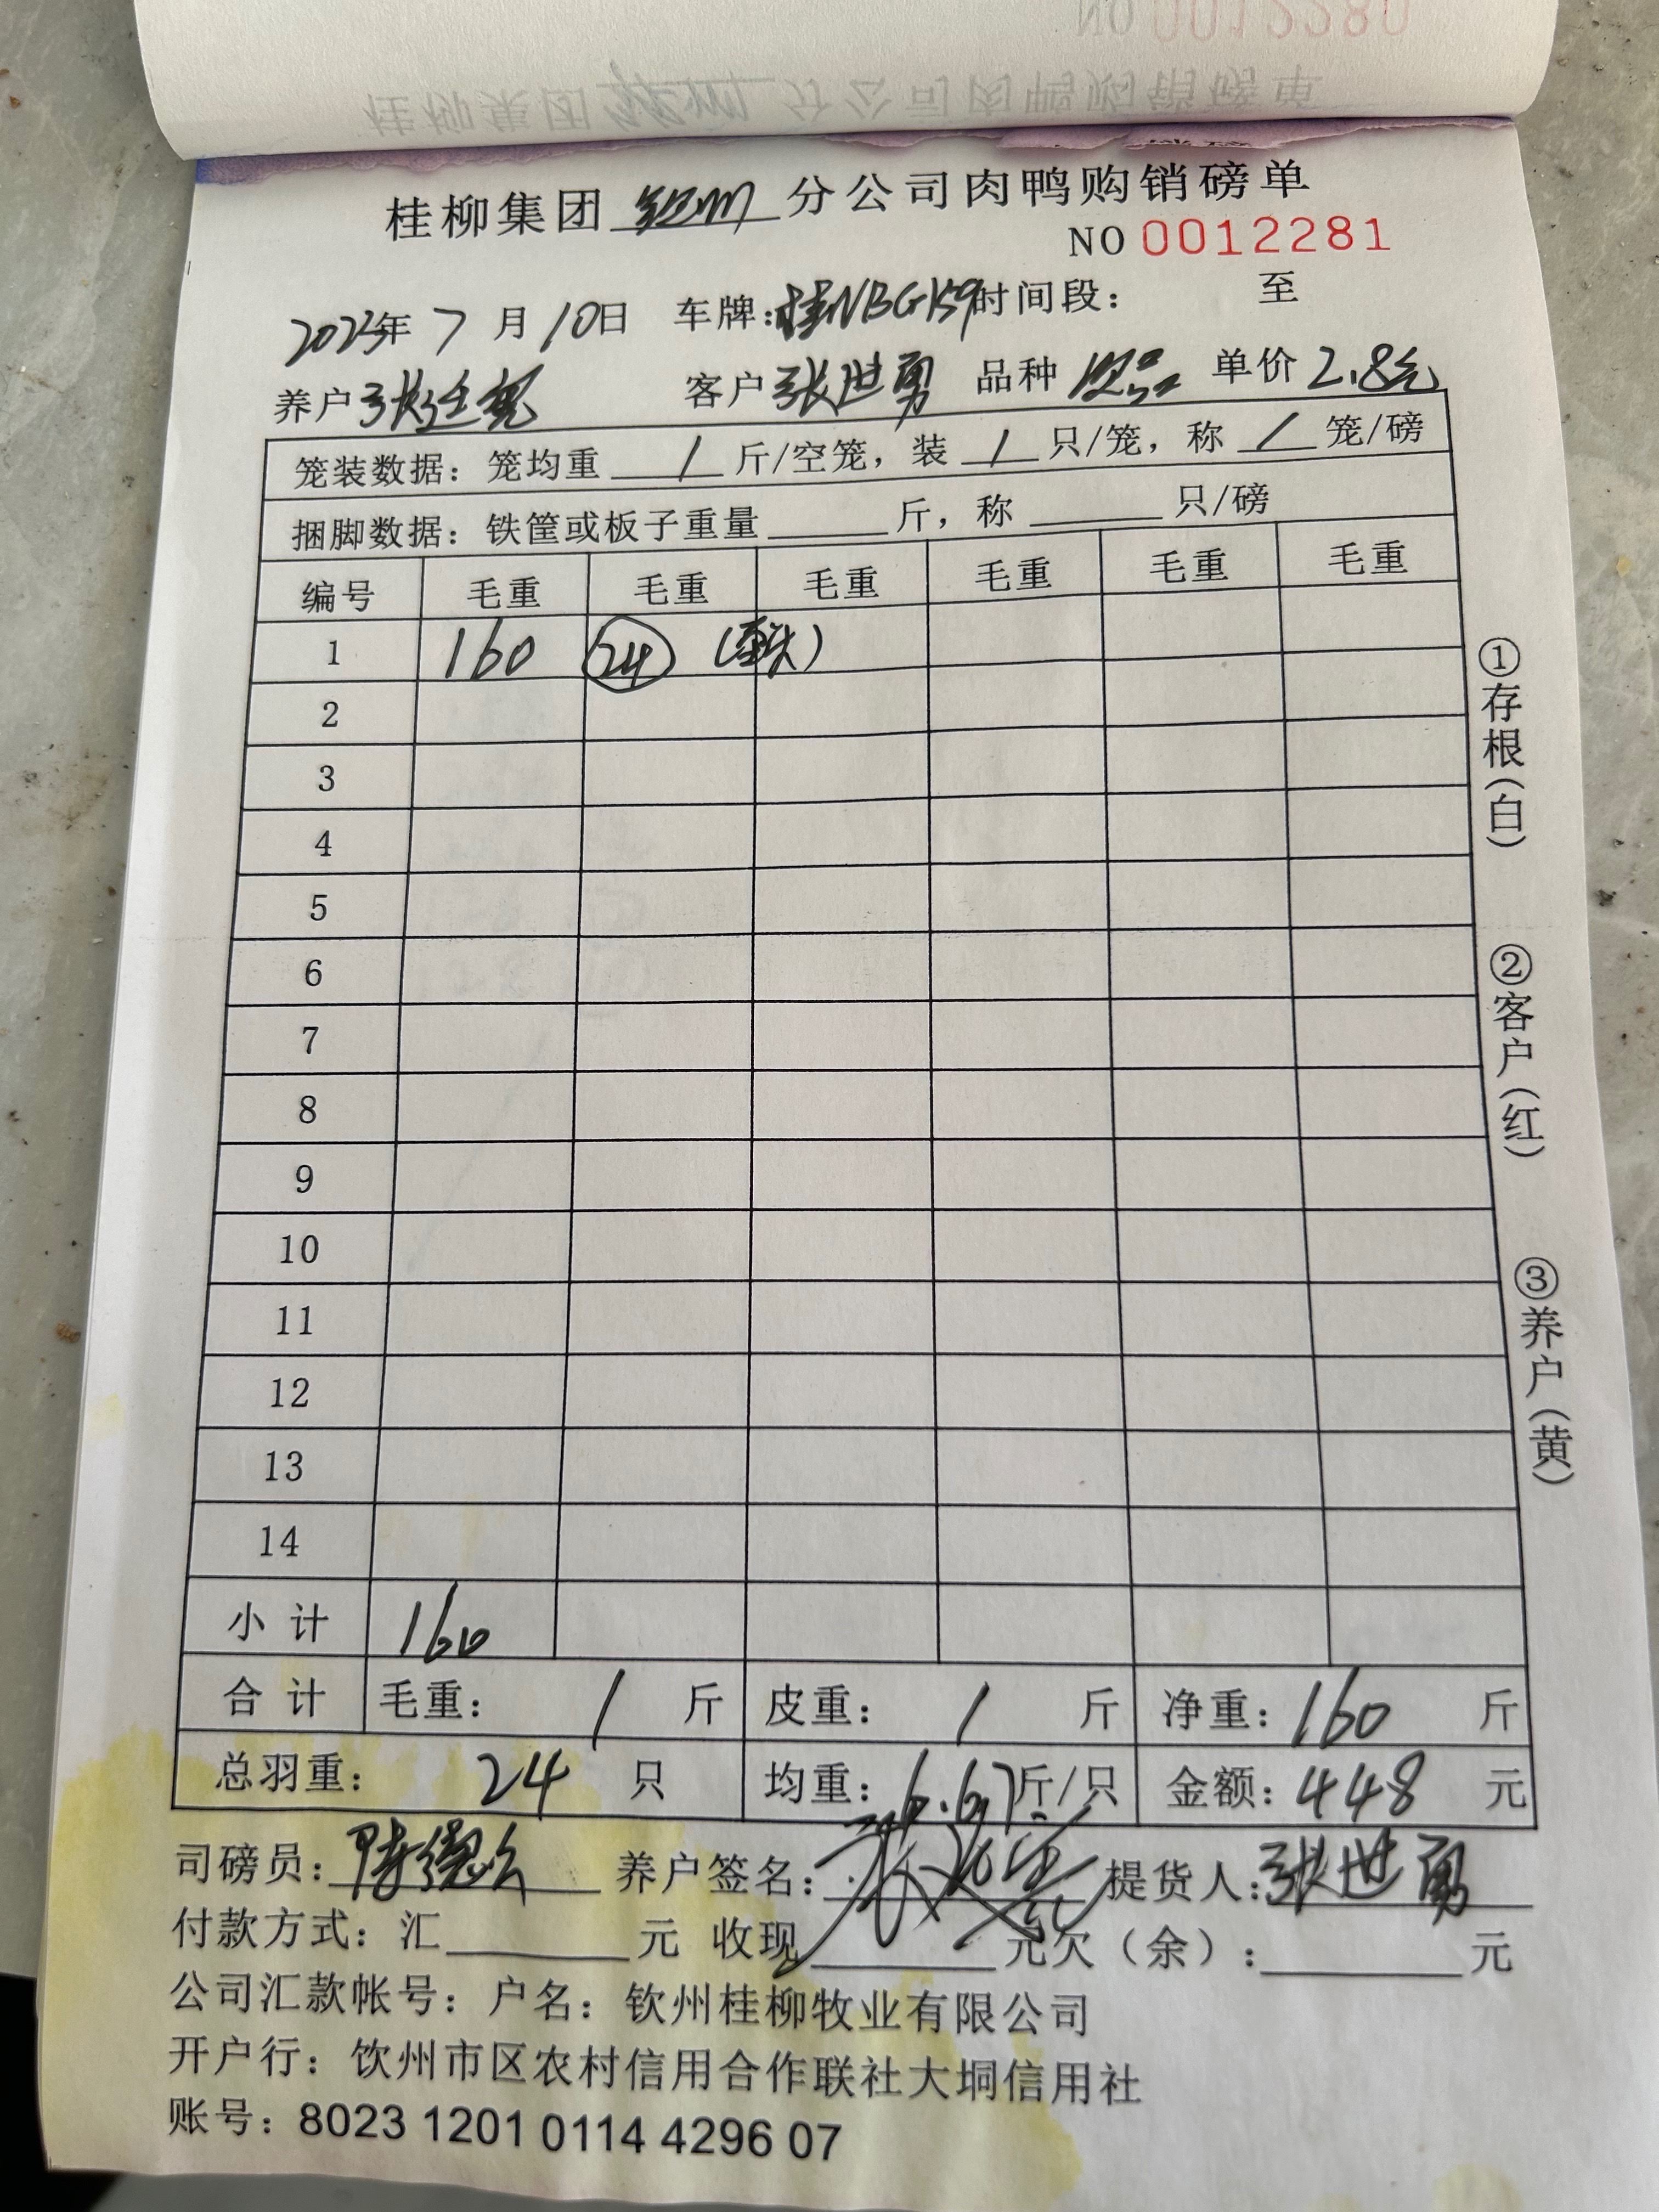 桂柳集团 钦州 分公司肉鸭购销磅单
NO 0012281
年 7 月 10日 车牌:桂NBG159 时间段: 至
养户 客户 张世勇 品种 单价 2.8元
笼装数据: 笼均重 / 斤/空笼, 装 / 只/笼, 称 / 笼/磅
捆脚数据: 铁筐或板子重量 斤, 称 只/磅
编号 毛重 毛重 毛重 毛重 毛重 毛重
1 160 24
2
3
4
5
6
7
8
9
10
11
12
13
14
小 计 160
合 计 毛重: / 斤 皮重: / 斤 净重: 160 斤
总羽重: 24 只 均重: 6.67 斤/只 金额: 448 元
司磅员: 养户签名: 提货人: 张世勇
付款方式: 汇 元 收现 元欠(余): 元
公司汇款帐号: 户名: 钦州桂柳牧业有限公司
开户行: 饮州市区农村信用合作联社大垌信用社
账号: 8023 1201 0114 4296 07
①存根(白)
②客户(红)
③养户(黄)